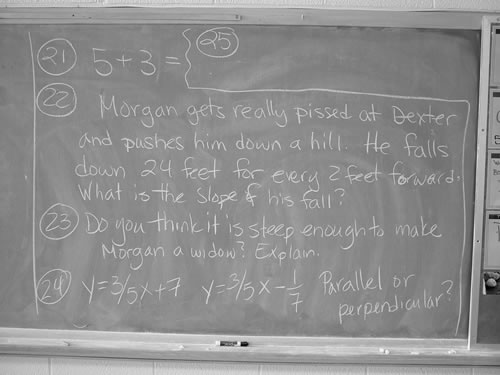 21 5+3=
25
22 Morgan gets really pissed at Dexter
and pushes him down a hill. He falls
down 24 feet for every 2 feet forward.
What is the slope of his fall?
23 Do you think it is steep enough to make
Morgan a widow? Explain.
24 y=3/5x+7 y=3/5x-1/7 Parallel or
perpendicular?